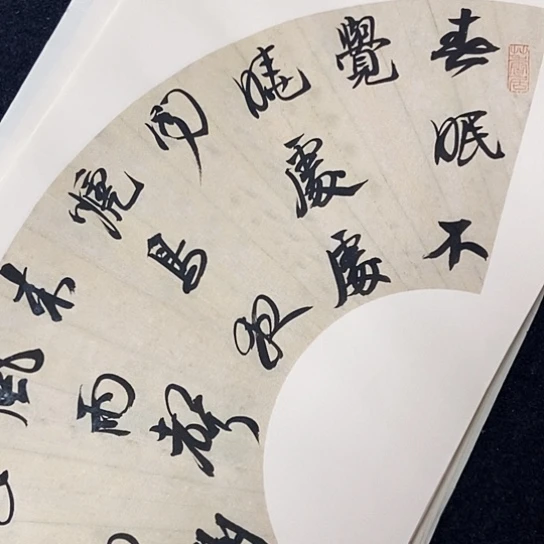 春眠不
覺
曉處處
聞
啼鳥夜
來
風雨聲